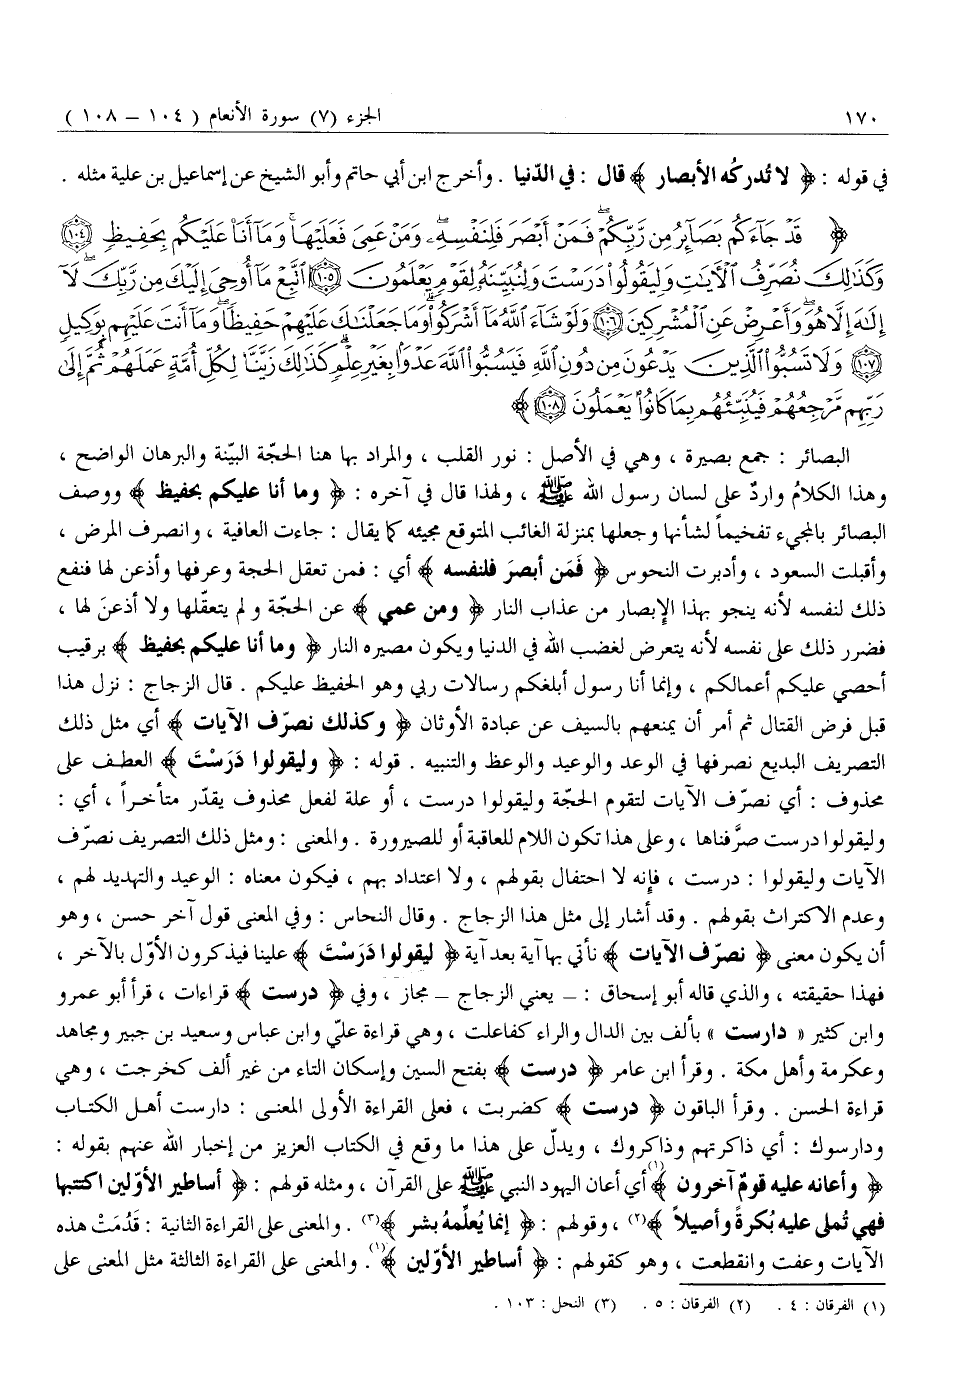 ١٧٠ الجزء (٧) سورة الأنعام ( ١٠٤ – ١٠٨ )
في قوله : ﴿ لا تُدركُه الأبصار ﴾ قال : في الدّنيا . وأخرج ابن أبي حاتم وأبو الشيخ عن إسماعيل بن علية مثله .
﴿ قَدْ جَآءَكُم بَصَآئِرُ مِن رَّبِّكُمْ ۖ فَمَنْ أَبْصَرَ فَلِنَفْسِهِۦ ۖ وَمَنْ عَمِىَ فَعَلَيْهَا ۚ وَمَآ أَنَا۠ عَلَيْكُم بِحَفِيظٍ ١٠٤
وَكَذَٰلِكَ نُصَرِّفُ ٱلْءَايَٰتِ وَلِيَقُولُوا۟ دَرَسْتَ وَلِنُبَيِّنَهُۥ لِقَوْمٍ يَعْلَمُونَ ١٠٥ ٱتَّبِعْ مَآ أُوحِىَ إِلَيْكَ مِن رَّبِّكَ ۖ لَآ
إِلَٰهَ إِلَّا هُوَ ۖ وَأَعْرِضْ عَنِ ٱلْمُشْرِكِينَ ١٠٦ وَلَوْ شَآءَ ٱللَّهُ مَآ أَشْرَكُوا۟ ۗ وَمَا جَعَلْنَٰكَ عَلَيْهِمْ حَفِيظًا ۖ وَمَآ أَنتَ عَلَيْهِم بِوَكِيلٍ
١٠٧ وَلَا تَسُبُّوا۟ ٱلَّذِينَ يَدْعُونَ مِن دُونِ ٱللَّهِ فَيَسُبُّوا۟ ٱللَّهَ عَدْوًۢا بِغَيْرِ عِلْمٍ ۗ كَذَٰلِكَ زَيَّنَّا لِكُلِّ أُمَّةٍ عَمَلَهُمْ ثُمَّ إِلَىٰ
رَبِّهِم مَّرْجِعُهُمْ فَيُنَبِّئُهُم بِمَا كَانُوا۟ يَعْمَلُونَ ١٠٨ ﴾
البصائر : جمع بصيرة ، وهي في الأصل : نور القلب ، والمراد بها هنا الحجّة البيّنة والبرهان الواضح ،
وهذا الكلامُ واردٌ على لسان رسول الله ﷺ ، ولهذا قال في آخره : ﴿ وما أنا عليكم بحفيظ ﴾ ووصف
البصائر بالمجيء تفخيماً لشأنها وجعلها بمنزلة الغائب المتوقع مجيئه كما يقال : جاءت العافية ، وانصرف المرض ،
وأقبلت السعود ، وأدبرت النحوس ﴿ فَمَن أبصرَ فلنفسه ﴾ أي : فمن تعقل الحجة وعرفها وأذعن لها فنفع
ذلك لنفسه لأنه ينجو بهذا الإبصار من عذاب النار ﴿ ومن عمي ﴾ عن الحجّة و لم يتعقّلها ولا أذعنَ لها ،
فضرر ذلك على نفسه لأنه يتعرض لغضب الله في الدنيا ويكون مصيره النار ﴿ وما أنا عليكم بحفيظ ﴾ برقيب
أحصي عليكم أعمالكم ، وإنما أنا رسول أبلغكم رسالات ربي وهو الحفيظ عليكم . قال الزجاج : نزل هذا
قبل فرض القتال ثم أمر أن يمنعهم بالسيف عن عبادة الأوثان ﴿ وكذلك نصرّف الآيات ﴾ أي مثل ذلك
التصريف البديع نصرفها في الوعد والوعيد والوعظ والتنبيه . قوله : ﴿ وليقولوا دَرَسْتَ ﴾ العطف على
محذوف : أي نصرّف الآيات لتقوم الحجّة وليقولوا درست ، أو علة لفعل محذوف يقدّر متأخـراً ، أي :
وليقولوا درست صرَّفناها ، وعلى هذا تكون اللام للعاقبة أو للصيرورة . والمعنى : ومثل ذلك التصريف نصرّف
الآيات وليقولوا : درست ، فإنه لا احتفال بقولهم ، ولا اعتداد بهم ، فيكون معناه : الوعيد والتهديد لهم ،
وعدم الاكتراث بقولهم . وقد أشار إلى مثل هذا الزجاج . وقال النحاس : وفي المعنى قول آخر حسن ، وهو
أن يكون معنى ﴿ نصرّف الآيات ﴾ نأتي بها آية بعد آية ﴿ ليقولوا دَرَسْتَ ﴾ علينا فيذكرون الأوّل بالآخر ،
فهذا حقيقته ، والذي قاله أبو إسحاق : – يعني الزجاج – مجاز ، وفي ﴿ درست ﴾ قراءات ، قرأ أبو عمرو
وابن كثير « دارست » بألف بين الدال والراء كفاعلت ، وهي قراءة عليّ وابن عباس وسعيد بن جبير ومجاهد
وعكرمة وأهل مكة . وقرأ ابن عامر ﴿ درست ﴾ بفتح السين وإسكان التاء من غير ألف كخرجت ، وهي
قراءة الحسن . وقرأ الباقون ﴿ درست ﴾ كضربت ، فعلى القراءة الأولى المعنـى : دارست أهـل الكتـاب
ودارسوك : أي ذاكرتهم وذاكروك ، ويدلّ على هذا ما وقع في الكتاب العزيز من إخبار الله عنهم بقوله :
﴿ وأعانه عليه قومٌ آخرون ﴾(١) أي أعان اليهود النبي ﷺ على القرآن ، ومثله قولهم : ﴿ أساطير الأوّلين اكتتبها
فهي تُملى عليه بُكرةً وأصيلاً ﴾(٢) ، وقولهم : ﴿ إنما يُعلِّمهُ بشر ﴾(٣) . والمعنى على القراءة الثانية : قَدُمَتْ هذه
الآيات وعفت وانقطعت ، وهو كقولهم : ﴿ أساطير الأوّلين ﴾(١) . والمعنى على القراءة الثالثة مثل المعنى على
(١) الفرقان : ٤ . (٢) الفرقان : ٥ . (٣) النحل : ١٠٣ .